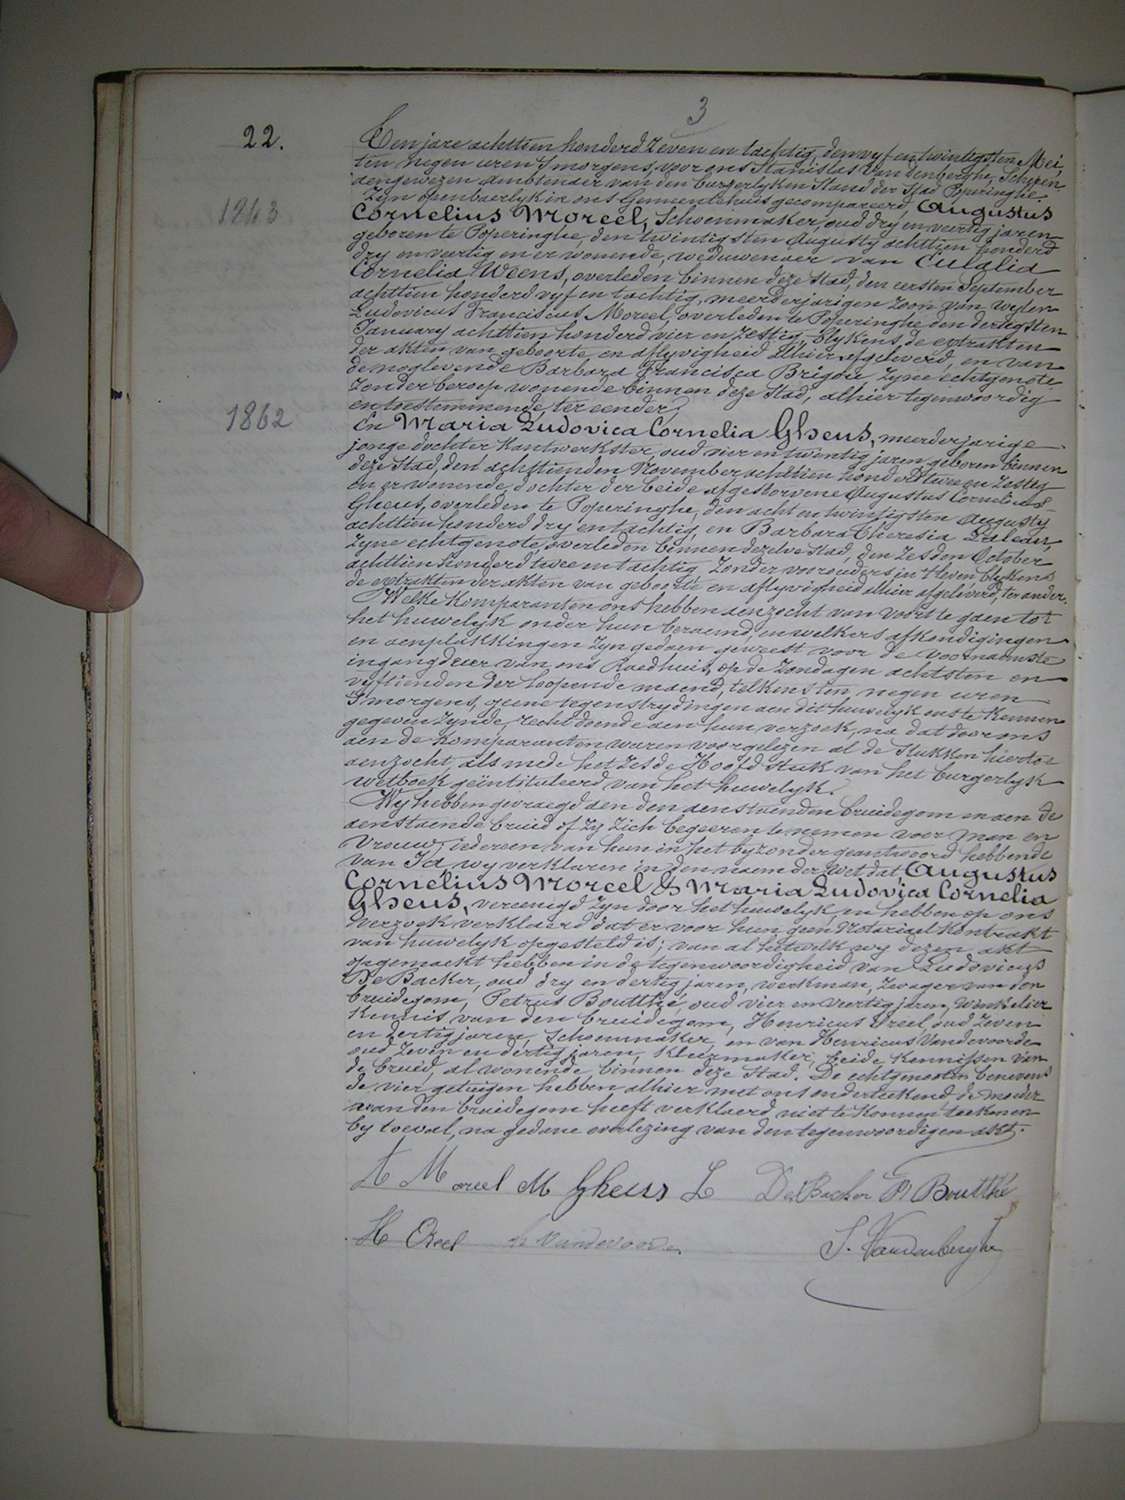 3
22.
Ten jare achttien honderd zeven en tachtig, den vyf en twintigsten Mei,
ten negen uren 's morgens, voor ons Stanislas Vandenberghe, Schepen
aengewezen Ambtenaer van den burgerlyken Stand der Stad Poperinghe,
zyn openbaerlyk in ons Gemeentehuis gecompareerd, Augustus
1843
Cornelius Moreel, Schoenmaker, oud dry en veertig jaren
geboren te Poperinghe, den twintigsten Augusty achttien honderd
dry en veertig en er wonende, weduwenaer van Eulalia
Cornelia Weens, overleden binnen deze Stad, den eersten September
achttien honderd vyf en tachtig, meerderjarigen zoon van wylen
Ludovicus Franciscus Moreel, overleden te Poperinghe den dertigsten
January achttien honderd vier en zestig, blykens de extrakten
der akten van geboorte en aflyvigheid alhier afgeleverd, en van
de noglevende Barbara Francisca Brigou zyne echtgenote
zonder beroep wonende binnen deze Stad, alhier tegenwoordig
en toestemmende, ter eender,
1862
En Maria Ludovica Cornelia Gheus, meerderjarige
jonge dochter Kantwerkster, oud vier en twintig jaren geboren binnen
deze Stad, den achttienden November achttien honderd twee en zestig
en er wonende, dochter der beide afgestorvene Augustus Cornelius
Gheus, overleden te Poperinghe, den acht en twintigsten Augusty
achttien honderd dry en tachtig, en Barbara Theresia
zyne echtgenote, overleden binnen dezelve Stad, den zesden October
achttien honderd twee en tachtig zonder voorouders in 't leven blykens
de extrakten der akten van geboorte en aflyvigheid alhier afgeleverd, ter ander.
Welke Komparanten ons hebben aenzocht van voort te gaen tot
het huwelyk onder hun beraemd, en welkers afkondigingen
en aenplakkingen zyn gedaen geweest voor de voornaemste
ingangdeur van ons Raedhuis, op de Zondagen achtsten en
vyftienden der loopende maend, telkens ten negen uren
's morgens, geene tegenstrydingen aen dit huwelyk ons te kennen
gegeven zynde, recht doende aen hun verzoek, na dat door ons
aen de Komparanten waren voorgelezen al de Stukken hiertoe
aenzocht, als mede het zesde Hoofdstuk van het burgerlyk
wetboek geïntituleerd van het huwelyk.
Wy hebben gevraegd aen den aenstaenden bruidegom en aen de
aenstaende bruid of zy zich begeeren te nemen voor man en
vrouw, iedereen van hun in het byzonder geantwoord hebbende
van Ja, wy verklaren in den naem der wet dat, Augustus
Cornelius Moreel & Maria Ludovica Cornelia
Gheus, vereenigd zyn door het huwelyk, en hebben op ons
verzoek verklaerd dat er voor hun geen Notariael Kontrakt
van huwelyk opgesteld is; van al hetwelk wy dezen akt
opgemaekt hebben in de tegenwoordigheid van Ludovicus
De Backer, oud dry en dertig jaren, werkman, zwager van den
bruidegom, Petrus Boutthé, oud vier en veertig jaren, Winkelier
Kennis van den bruidegom, Henricus Creel, oud zeven
en dertig jaren, Schoenmaker, en van Henricus Vandevoorde
oud zeven en dertig jaren, Kleermaker, beide Kennissen van
de bruid, al wonende binnen deze Stad. De echtgenooten benevens
de vier getuigen hebben alhier met ons onderteekend, de moeder
van den bruidegom heeft verklaerd niet te konnen teekenen
by toeval, na gedane overlezing van den tegenwoordigen akt.
A Moreel M Gheus L DeBacker P Boutthé
H Creel h Vandevoorde S. Vandenberghe